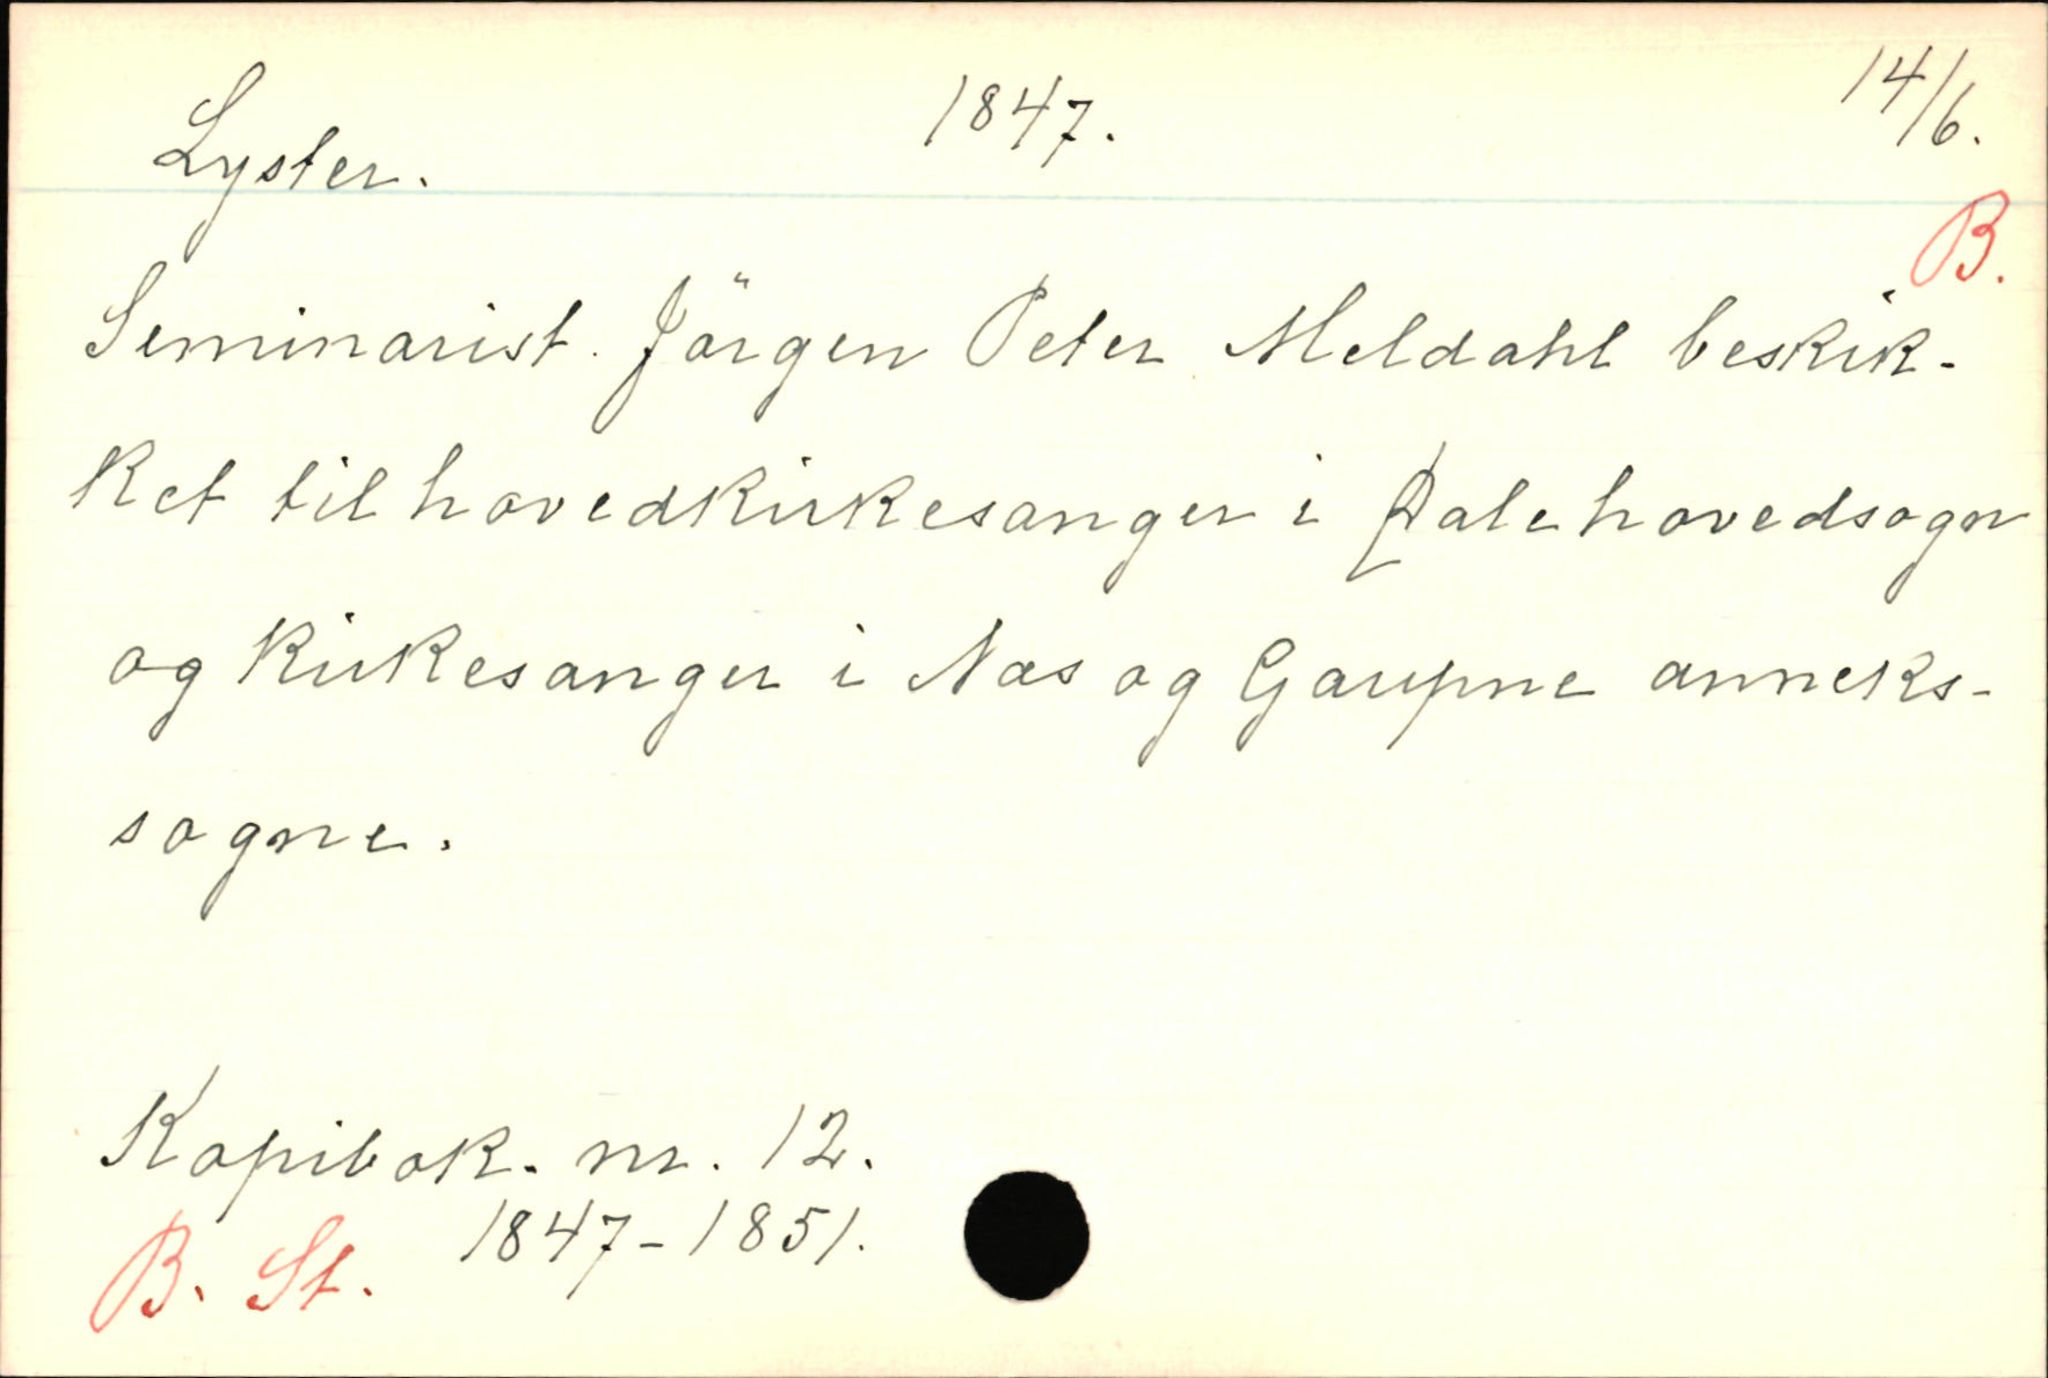 Lyster. 1847. 14/6.
B.
Seminarist Jörgen Peter Meldahl beskik-
ket til hovedkirkesanger i Dale hovedsogn
og kirkesanger i Næs og Gaupne anneks-
sogne.
Kopibok. nr. 12.
1847-1851.
B. St.